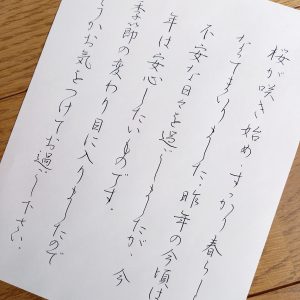 桜が咲き始め、すっかり春らし
なってまいりました。昨年の今頃は
不安な日々を過ごしましたが、今
年は安心したいものです。
季節の変わり目に入りましたので
どうかお気をつけてお過ごしください。